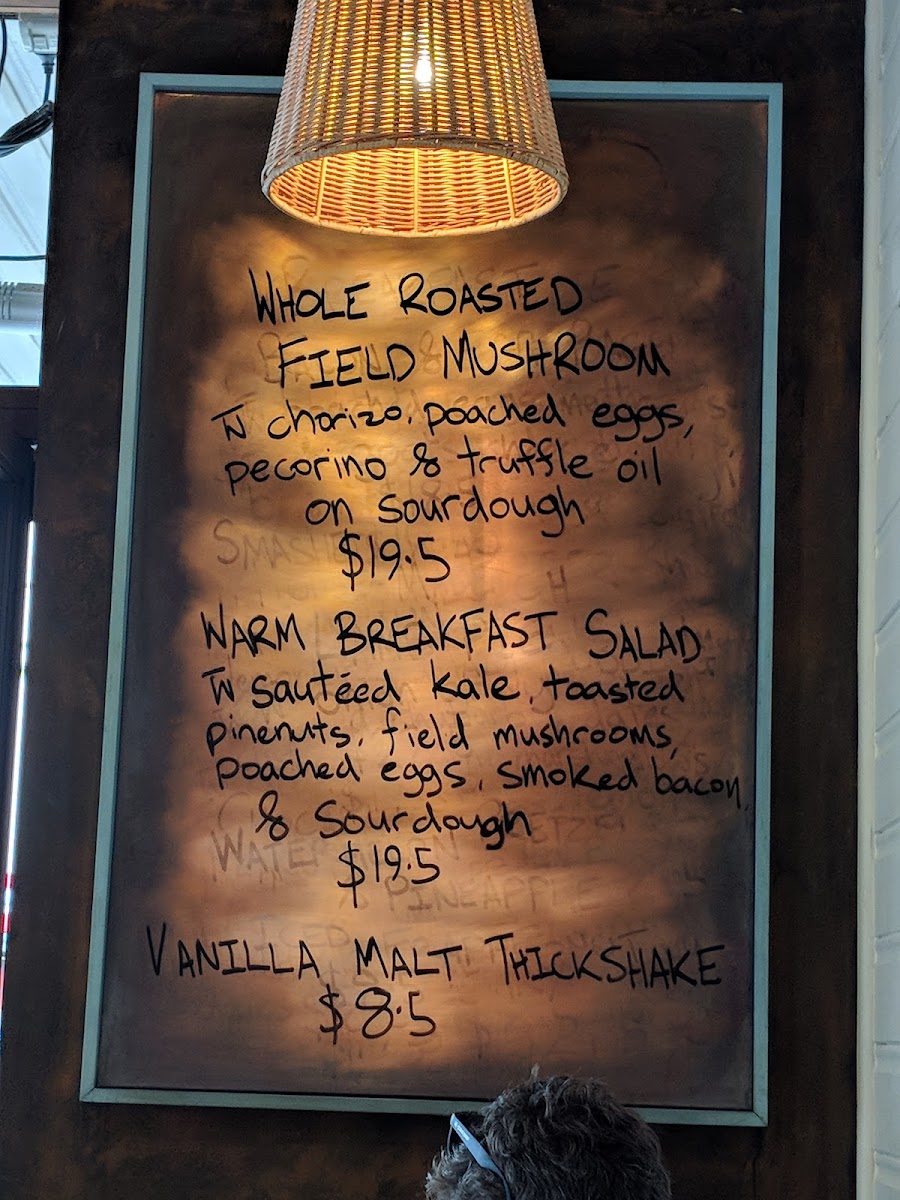 WHOLE ROASTED
FIELD MUSHROOM
W chorizo, poached eggs,
pecorino & truffle oil
on sourdough
$19.5
WARM BREAKFAST SALAD
W sautéed kale, toasted
pinenuts, field mushrooms,
poached eggs, smoked bacon,
& sourdough
$19.5
VANILLA MALT THICKSHAKE
$8.5